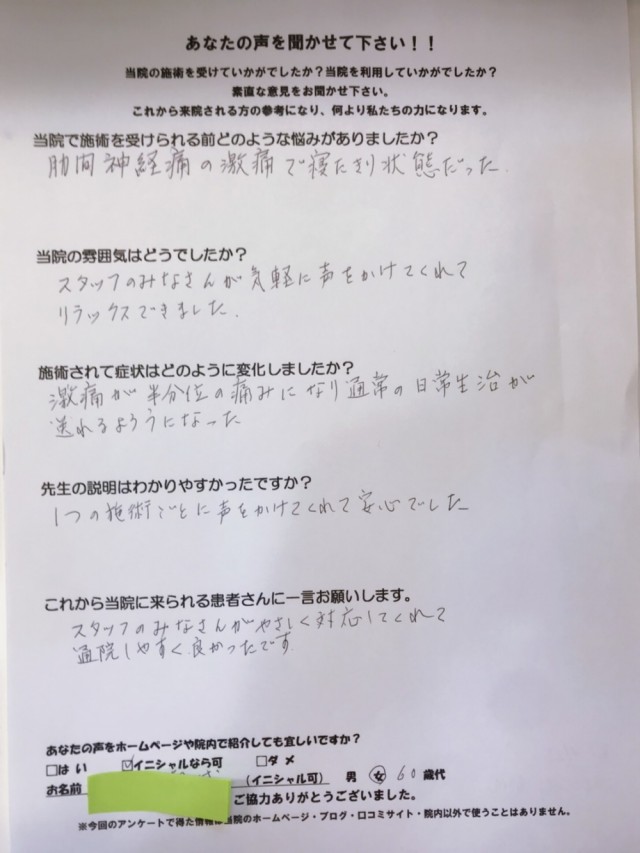 あなたの声を聞かせて下さい！！
当院の施術を受けていかがでしたか？当院を利用していかがでしたか？
素直な意見をお聞かせ下さい。
これから来院される方の参考になり、何より私たちの力になります。
当院で施術を受けられる前どのような悩みがありましたか？
肋間神経痛の激痛で寝たきり状態だった.
当院の雰囲気はどうでしたか？
スタッフのみなさんが気軽に声をかけてくれて
リラックスできました.
施術されて症状はどのように変化しましたか？
激痛が半分位の痛みになり通常の日常生治が
送れるようになった
先生の説明はわかりやすかったですか？
1つの施術ごとに声をかけてくれて安心でした
これから当院に来られる患者さんに一言お願いします。
スタッフのみなさんがやさしく対応してくれて
通院しやすく良かったです
あなたの声をホームページや院内で紹介しても宜しいですか？
□はい ☑イニシャルなら可 □ダメ
お名前 （イニシャル可） 男 女 60歳代
ご協力ありがとうございました。
※今回のアンケートで得た情報は当院のホームページ・ブログ・口コミサイト・院内以外で使うことはありません。